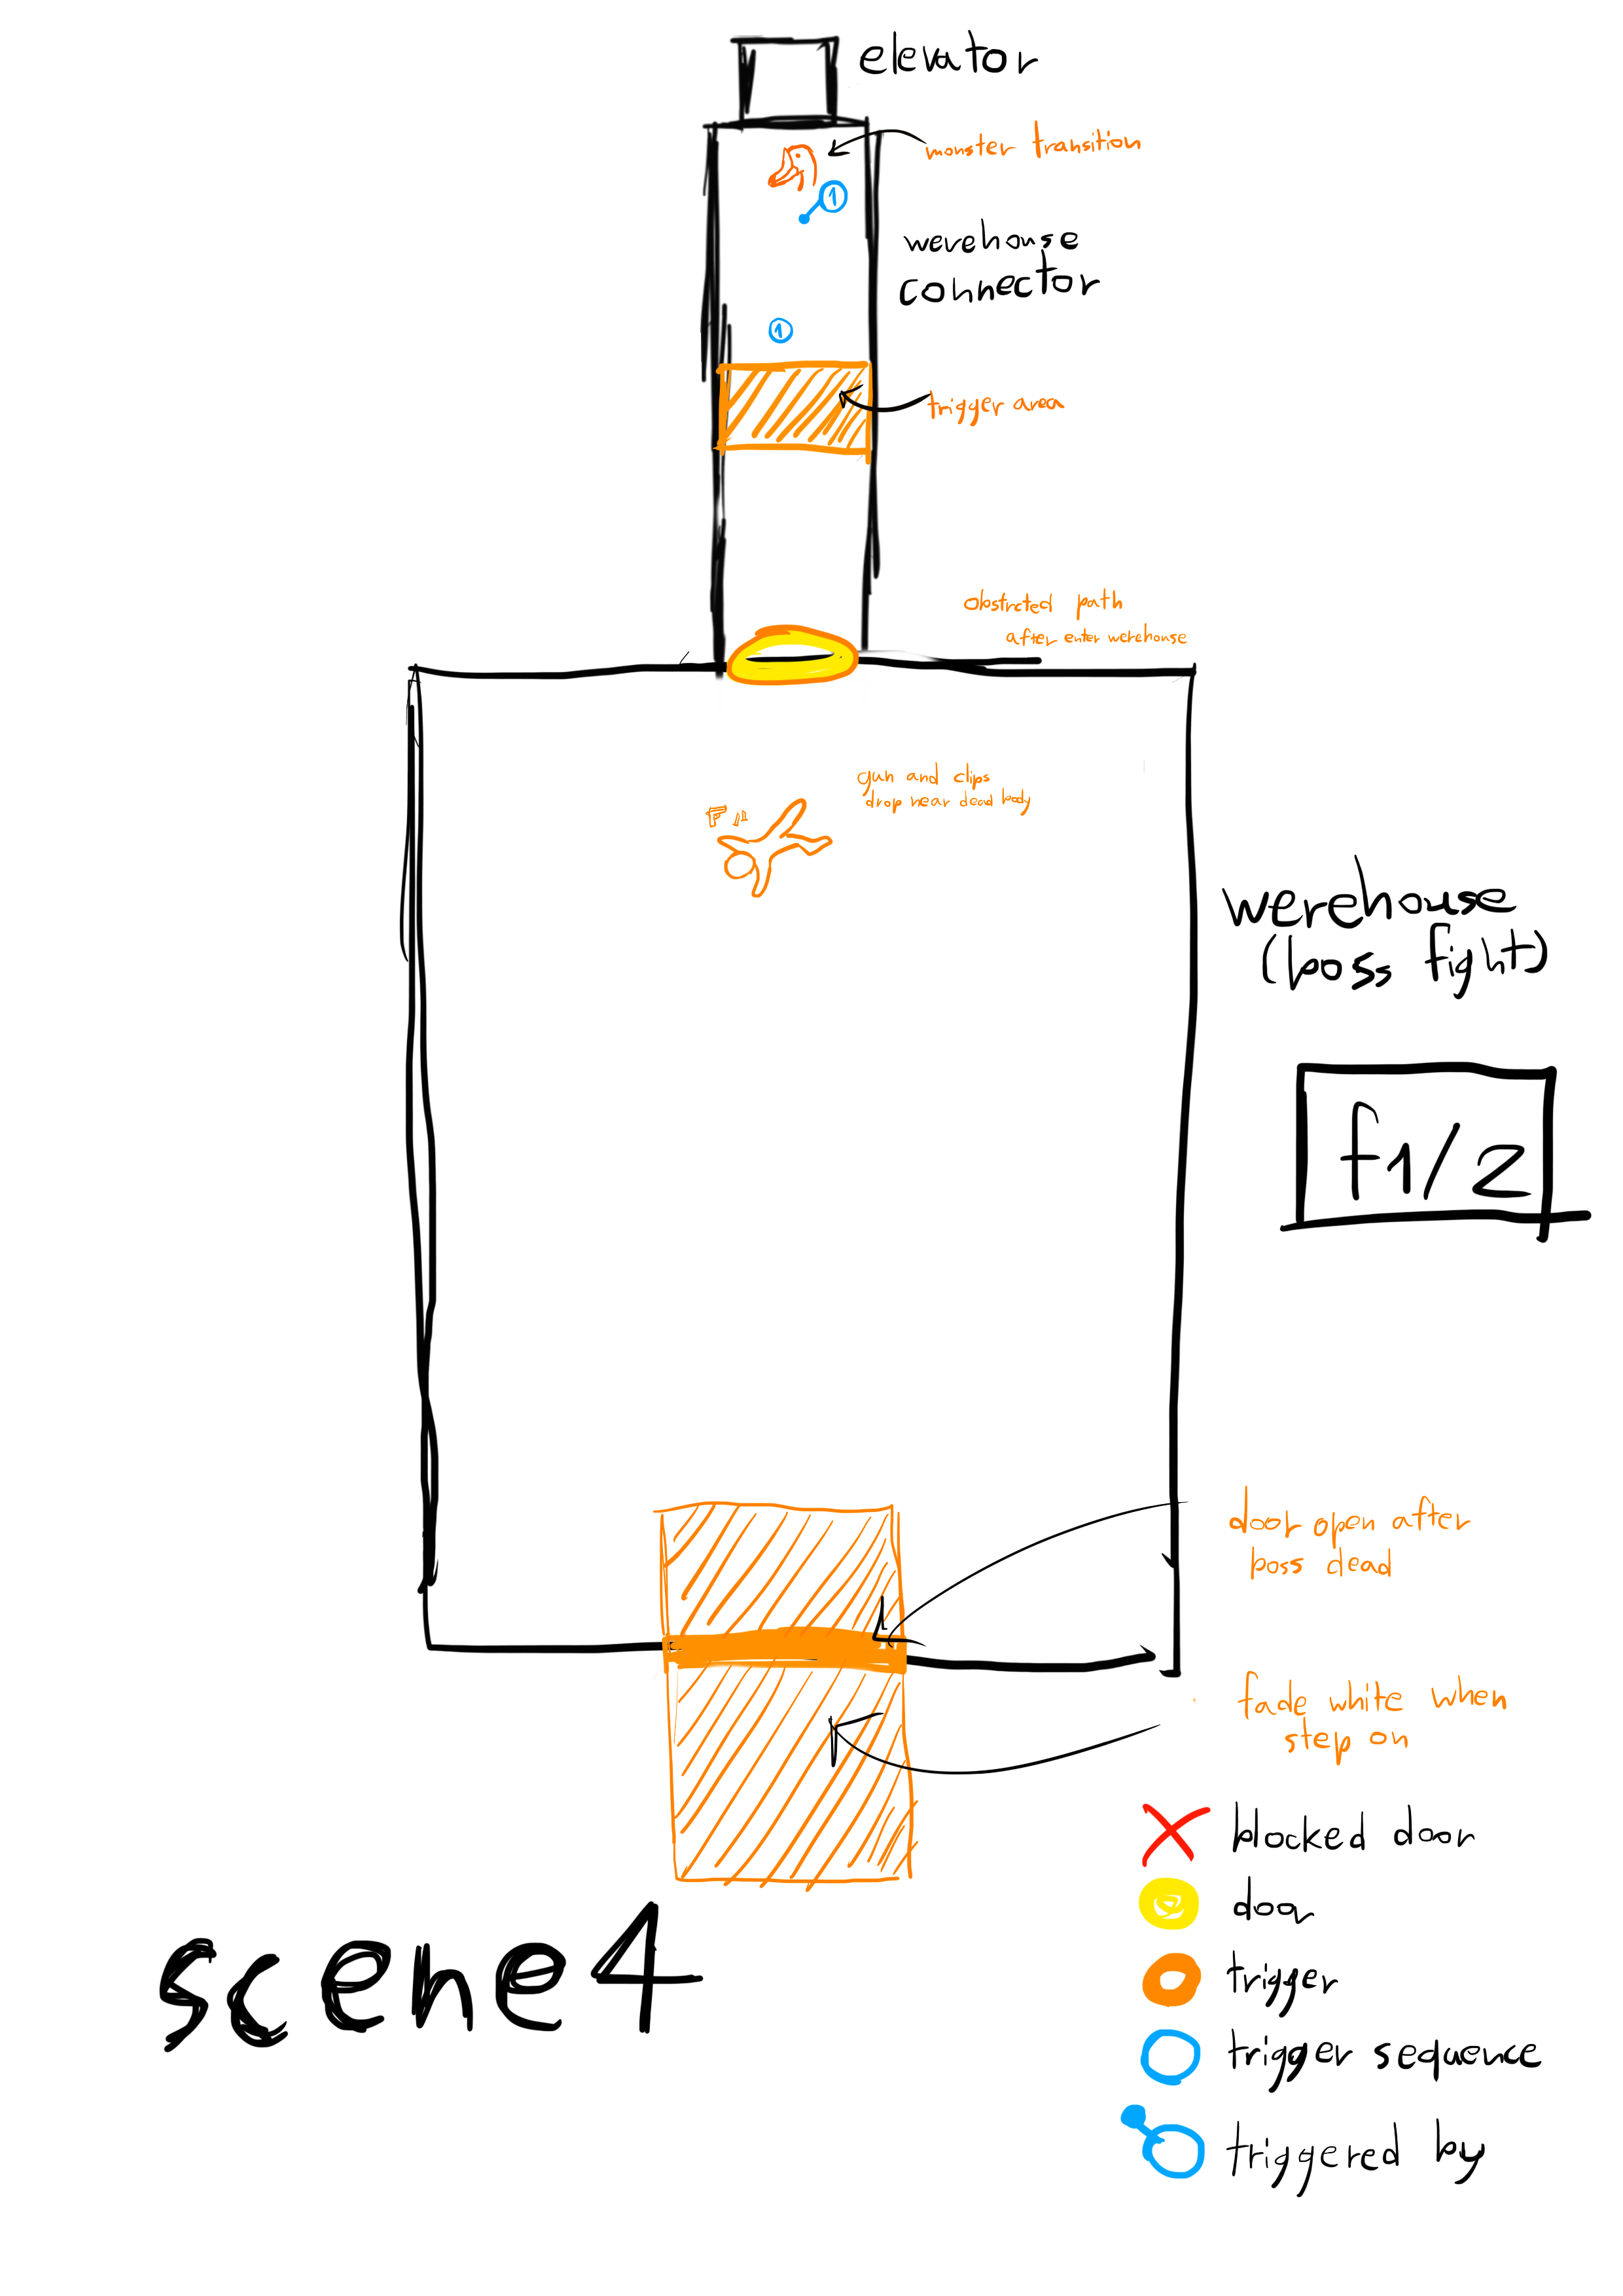 elevator
monster transition
1
werehouse
connector
1
trigger area
obstrcted path
after enter werehouse
gun and clips
drop near dead body
werehouse
(boss fight)
f1/2
door open after
boss dead
fade white when
step on
blocked door
door
trigger
trigger sequence
triggered by
scene4